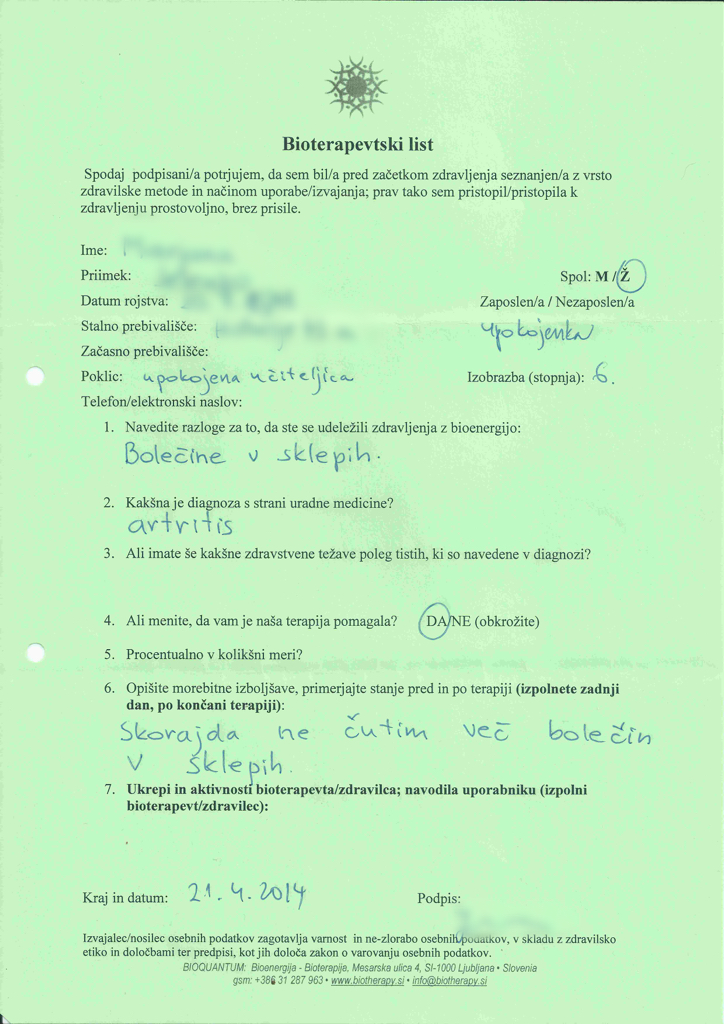 Bioterapevtski list
Spodaj podpisani/a potrjujem, da sem bil/a pred začetkom zdravljenja seznanjen/a z vrsto
zdravilske metode in načinom uporabe/izvajanja; prav tako sem pristopil/pristopila k
zdravljenju prostovoljno, brez prisile.
Ime:
Priimek:
Spol: M / Ž
Datum rojstva:
Zaposlen/a / Nezaposlen/a
Stalno prebivališče:
upokojenka
Začasno prebivališče:
Poklic: upokojena učiteljica
Izobrazba (stopnja): 6.
Telefon/elektronski naslov:
1. Navedite razloge za to, da ste se udeležili zdravljenja z bioenergijo:
Bolečine v sklepih.
2. Kakšna je diagnoza s strani uradne medicine?
artritis
3. Ali imate še kakšne zdravstvene težave poleg tistih, ki so navedene v diagnozi?
4. Ali menite, da vam je naša terapija pomagala? DA/NE (obkrožite)
5. Procentualno v kolikšni meri?
6. Opišite morebitne izboljšave, primerjajte stanje pred in po terapiji (izpolnete zadnji
dan, po končani terapiji):
Skorajda ne čutim več bolečin
v sklepih.
7. Ukrepi in aktivnosti bioterapevta/zdravilca; navodila uporabniku (izpolni
bioterapevt/zdravilec):
Kraj in datum: 21. 4. 2014
Podpis:
Izvajalec/nosilec osebnih podatkov zagotavlja varnost in ne-zlorabo osebnih podatkov, v skladu z zdravilsko
etiko in določbami ter predpisi, kot jih določa zakon o varovanju osebnih podatkov.
BIOQUANTUM: Bioenergija - Bioterapija, Mesarska ulica 4, SI-1000 Ljubljana • Slovenia
gsm: +386 31 287 963 • www.biotherapy.si • info@biotherapy.si